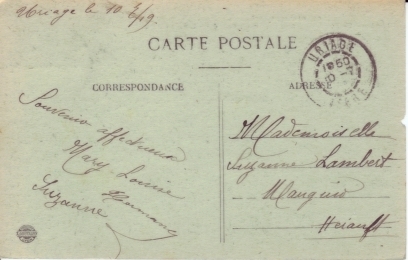 Uriage le 10 7/09.
CARTE POSTALE
CORRESPONDANCE
ADRESSE
URIAGE
ISERE
Souvenir affectueux
Mary-Louise
Suzanne
Mademoiselle
Suzanne Lambert
Mauguio
Hérault